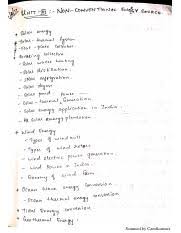 UNIT-III :- NON-CONVENTIONAL ENERGY SOURCE
- Solar energy
- Solar-thermal system
- Flat-plate collector
- Focusing collector
- Solar water heating
- Solar distillation
- Solar refrigeration
- Solar dryers
- Solar pond power
- Solar thermal
- Solar energy application in India.
- energy plantation
- Wind Energy
- Types of windmill
- Types of wind
- Wind electric power generation
- Wind power in India.
- Economy of wind farm
- Ocean wave energy conversion
- Ocean thermal energy conversion
- Tidal Energy conversion
- Geothermal Energy.
Scanned by CamScanner